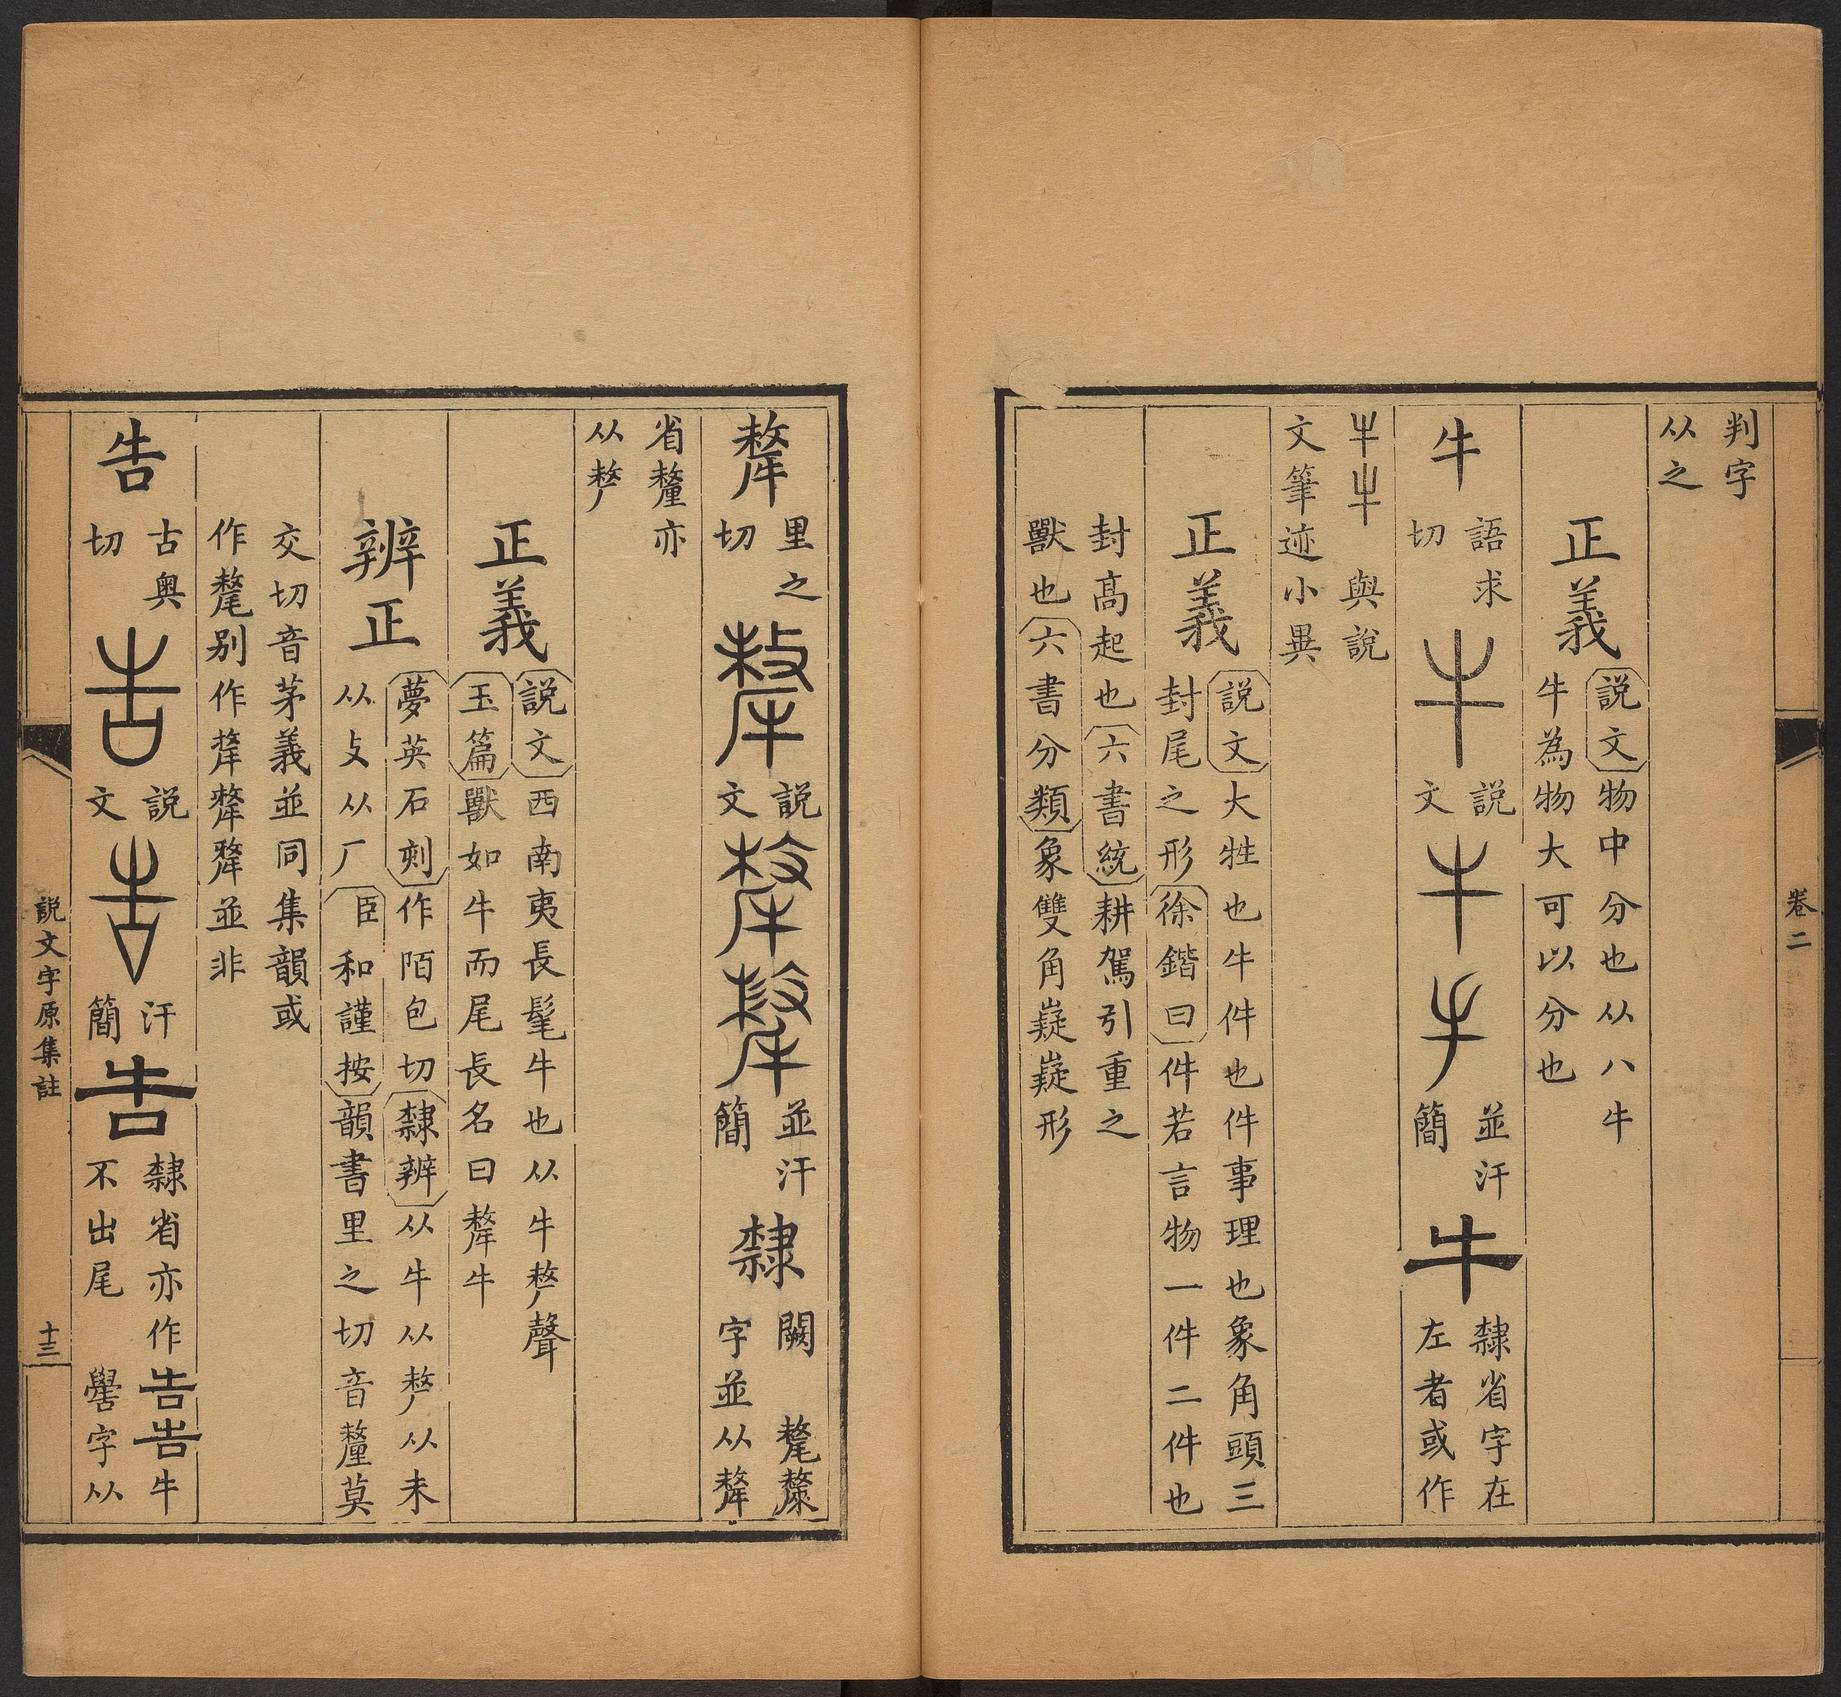 卷二
判字
从之
正義
説文物中分也从八牛
牛為物大可以分也
牛
語求
切
説
文
並汗
簡
牛
隸省字在
左者或作
與說
文筆迹小異
正義
説文大牲也牛件也件事理也象角頭三
封尾之形徐鍇曰件若言物一件二件也
封高起也六書統耕駕引重之
獸也六書分類象雙角嶷嶷形
犛
里之
切
説
文
並汗
簡
隸
闕 氂斄
字並从犛
省釐亦
从𠩺
正義
説文西南夷長髦牛也从牛𠩺聲
玉篇獸如牛而尾長名曰犛牛
辨正
夢英石刻作陌包切隸辨从牛从𠩺从未
从攴从厂臣和謹按韻書里之切音釐莫
交切音茅義並同集韻或
作氂别作犛犛犛並非
告
古奥
切
説
文
汗
簡
告
隸省亦作告告牛
不出尾 嚳字从
説文字原集註
十三